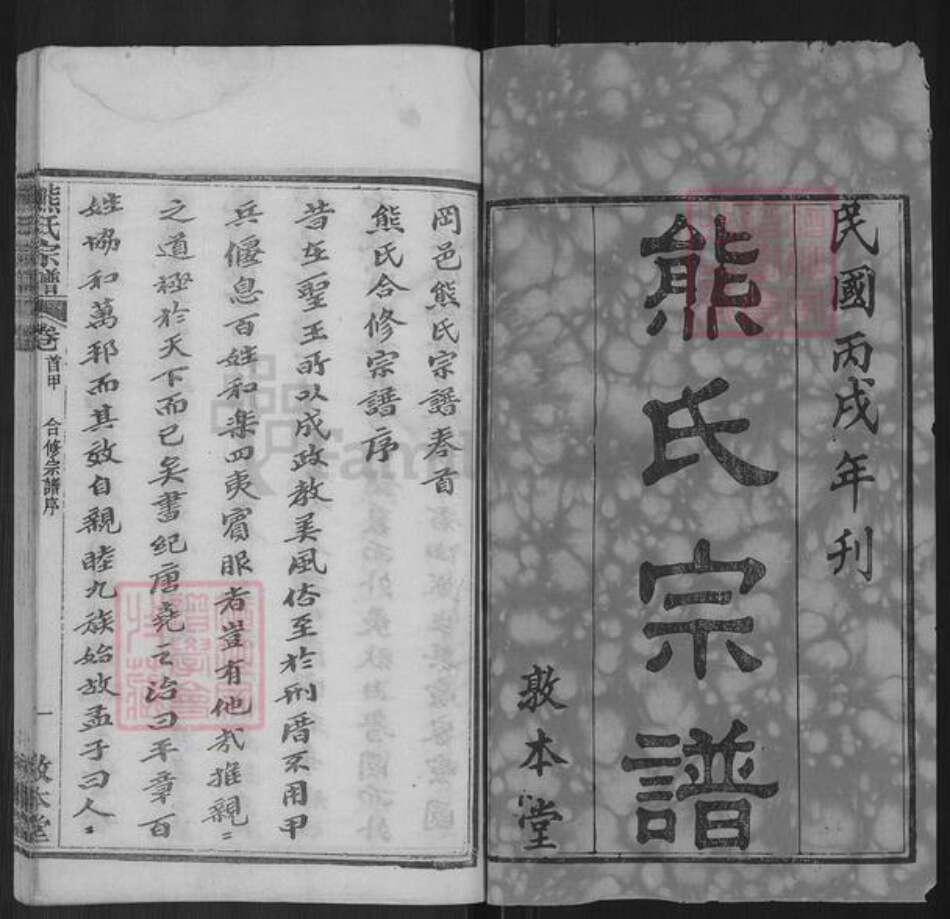 民國丙戌年刊
熊氏宗譜
敦本堂
岡邑熊氏宗譜卷首
熊氏合修宗譜序
昔在聖王所以成政教美風俗至於刑厝不用甲
兵偃息百姓和樂四夷賓服者豈有他哉推親〻
之道極於天下而已矣書紀唐堯之治曰平章百
姓協和萬邦而其效自親睦九族始故孟子曰人〻
熊氏宗譜 卷首甲 合修宗譜序 一 敦本堂